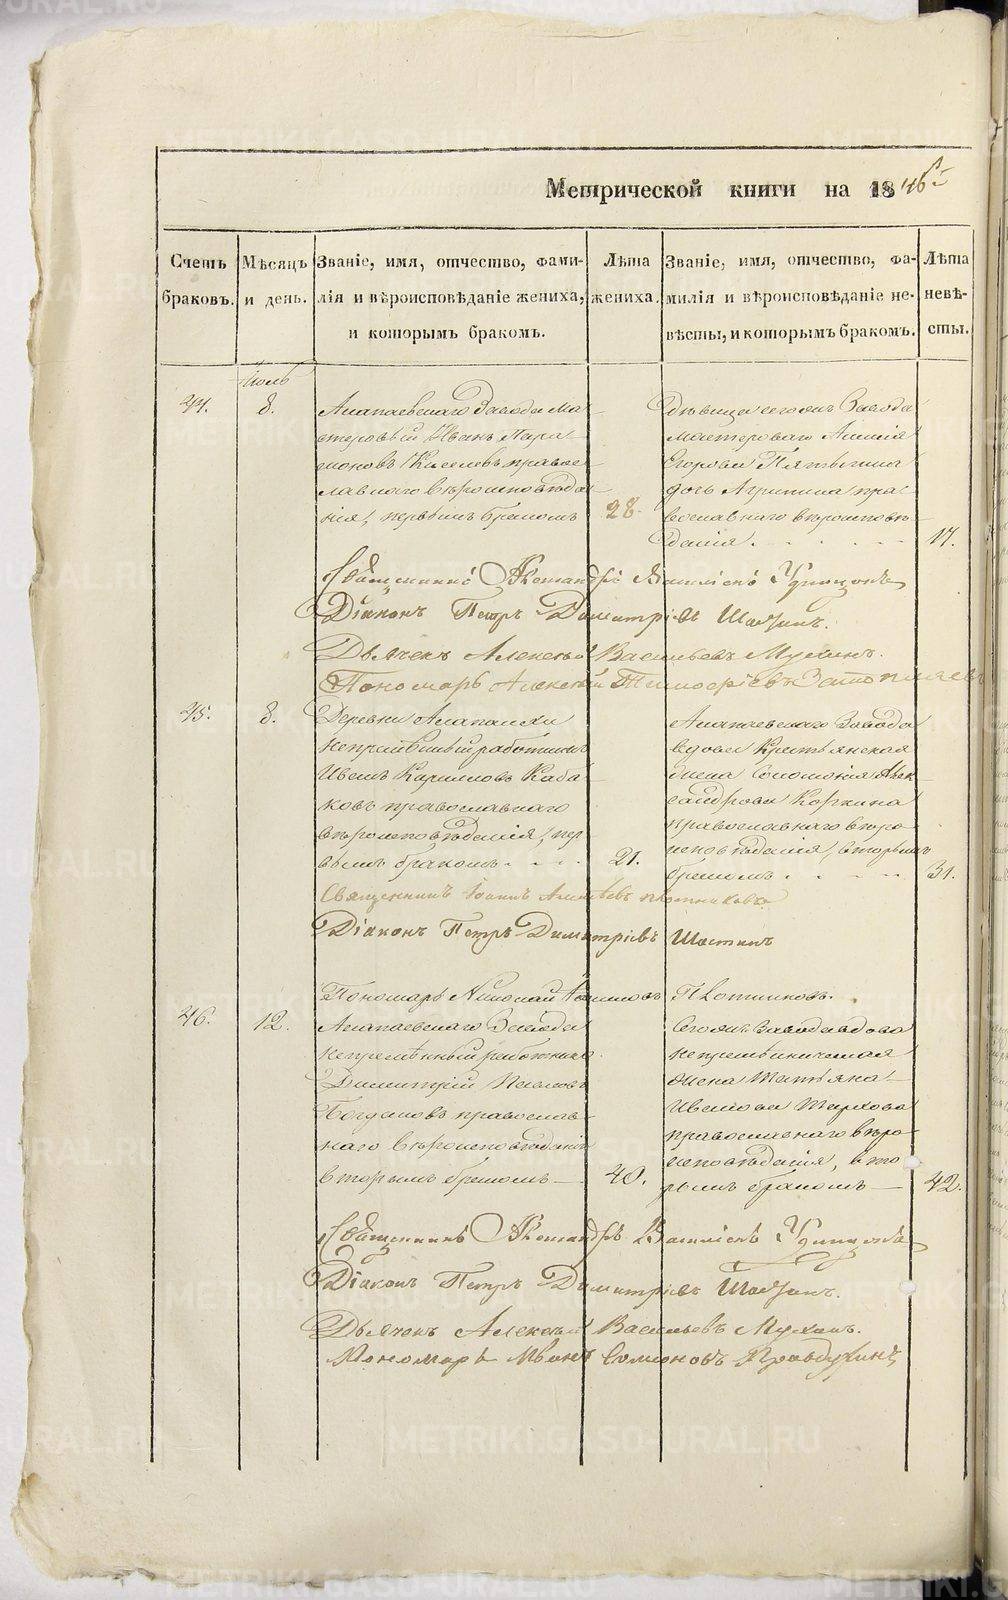 Метрической книги на 1846й
Счетъ браковъ.
Мѣсяцъ и день.
Званіе, имя, отчество, фами-
лія и вѣроисповѣданіе жениха,
и которымъ бракомъ.
Лѣта
жениха.
Званіе, имя, отчество, фа-
милія и вѣроисповѣданіе не-
вѣсты, и которымъ бракомъ.
Лѣта
невѣ-
сты.
Іюль
44.
8.
Алапаевскаго Завода ма-
стеровый Иванъ Пара-
моновъ Киселевъ правос-
лавнаго вѣроисповѣда-
нія, первымъ бракомъ
28.
Дѣвица сегожъ Завода
мастероваго
Егорова Пятыгина
дочь Агрипина пра-
вославнаго вѣроисповѣ-
данія
17.
Священникъ Александръ Василіевъ Удинцовъ
Діаконъ Петръ Димитріевъ Шастинъ.
Дьячекъ Алексѣй Васильевъ Мухинъ.
Пономарь Алексѣй Тимофеевъ Затопляевъ
45.
8.
Деревни Алапаихи
непремѣнный работникъ
Иванъ Кириловъ Каба-
ковъ православнаго
вѣроисповѣданія, пер-
вымъ бракомъ
21.
Алапаевскаго Завода
вдова Крестьянская
жена Соломонія Алек-
сандрова Коркина
православнаго вѣро-
исповѣданія, вторымъ
бракомъ
31.
Священникъ Іоаннъ Алексѣевъ Плотниковъ
Діаконъ Петръ Димитріевъ Шастинъ
Пономарь Николай Плотниковъ.
46.
12.
Алапаевскаго Завода
непремѣнный работникъ
Димитрій Павловъ
Богдановъ православ-
наго вѣроисповѣданія
вторымъ бракомъ
40.
Сегожъ Завода вдова
непремѣнническая
жена Татьяна
Иванова Терхова
православнаго вѣро-
исповѣданія, вто-
рымъ бракомъ
42.
Священникъ Александръ Василіевъ Удинцовъ
Діаконъ Петръ Димитріевъ Шастинъ.
Дьячекъ Алексѣй Васильевъ Мухинъ.
Пономарь Иванъ Симоновъ Правдухинъ
METRIKI.GASO-URAL.RU